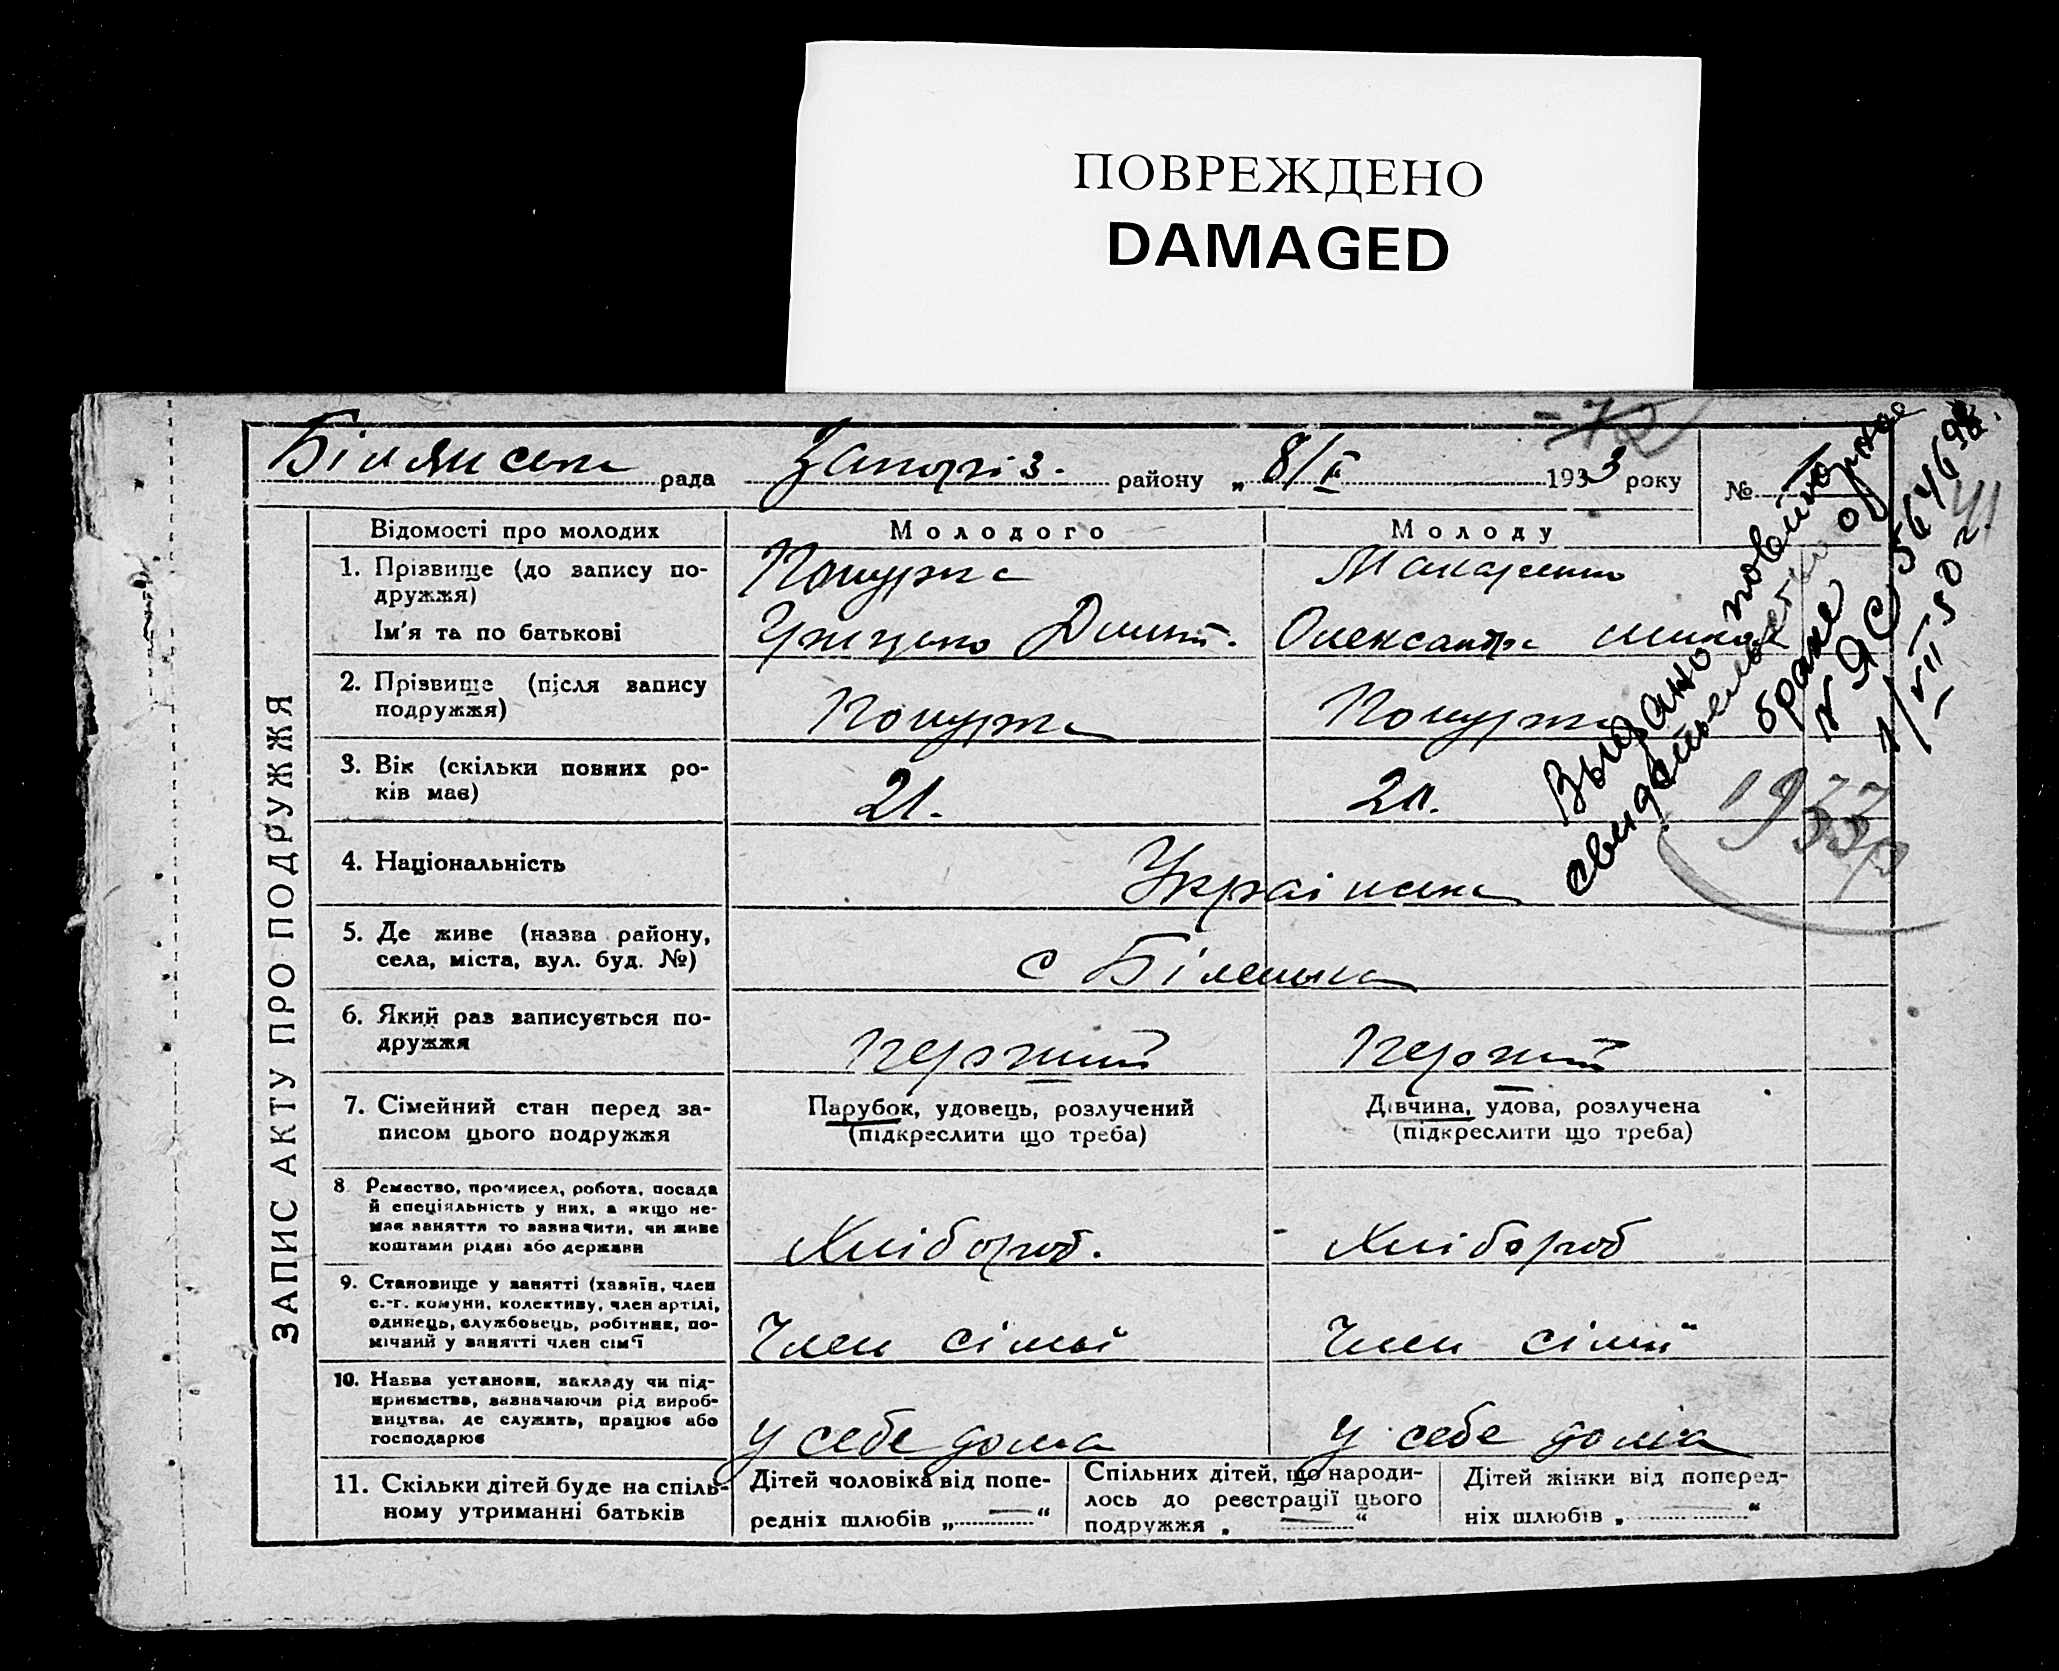 ПОВРЕЖДЕНО
DAMAGED
рада Запоріз. району „ 8/II 1933 року №
ЗАПИС АКТУ ПРО ПОДРУЖЖЯ
Відомості про молодих Молодого Молоду
1. Прізвище (до запису по-
дружжя)
Макаренко
Ім'я та по батькові
Грицько Дмит. Олександра
2. Прізвище (після запису
подружжя)
3. Вік (скільки повних ро-
ків має)
21.
4. Національність
Українська
5. Де живе (назва району,
села, міста, вул. буд. №)
с Біленька
6. Який раз записується по-
дружжя
первший первший
7. Сімейний стан перед за-
писом цього подружжя
Парубок, удовець, розлучений
(підкреслити що треба)
Дівчина, удова, розлучена
(підкреслити що треба)
8. Ремество, промисел, робота, посада
й спеціяльність у них, а якщо не-
має заняття то зазначити, чи живе
коштами рідні або держави
Хлібороб. Хлібороб
9. Становище у занятті (хазяїн, член
с.-г. комуни, колективу, член артілі,
одинець, службовець, робітник, по-
мічний у занятті член сім'ї
Член сімьї Член сімії
10. Назва установи, закладу чи під-
приємства, зазначаючи рід вироб-
ництва, де служить, працює або
господарює
у себе дома у себе дома
11. Скільки дітей буде на спіль-
ному утриманні батьків
Дітей чоловіка від попе-
редніх шлюбів „ — “
Спільних дітей, що народи-
лось до реєстрації цього
подружжя „ — “
Дітей жінки від поперед-
ніх шлюбів „ — “
Выдано повторное
свидетельство о
браке
1/VII 50 г
1933р